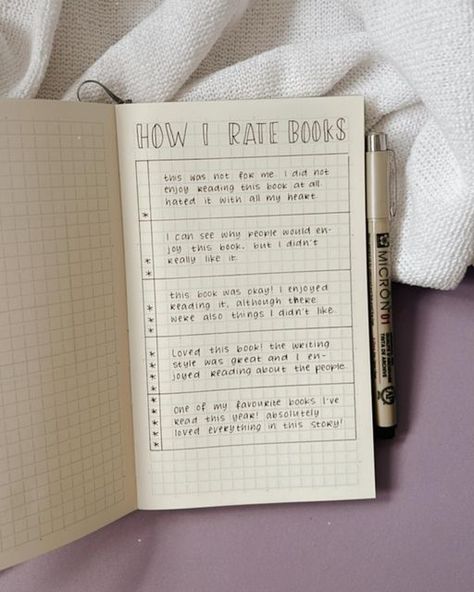 HOW I RATE BOOKS
this was not for me. I did not
enjoy reading this book at all.
hated it with all my heart.
*
I can see why people would en-
joy this book, but I didn't
really like it.
* *
this book was okay! I enjoyed
reading it, although there
were also things I didn't like.
* * *
Loved this book! the writing
style was great and I en-
joyed reading about the people.
* * * *
one of my favourite books I've
read this year! absolutely
loved everything in this story!
* * * * *
MICRON 01